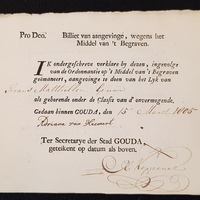 Pro Deo. Billiet van aangevinge, wegens het
Middel van 't Begraven.
IK ondergeschreve verklare by dezen, ingevolge
van de Ordonnantie op 't Middel van 't Begraven
geëmaneert, aangevinge te doen van het Lyk van
als gehorende onder de Classis van d' onvermogende.
Gedaan binnen GOUDA, den 15 Maart 1805
Adriana van
Ter Secretarye der Stad GOUDA,
geteikent op datum als boven.